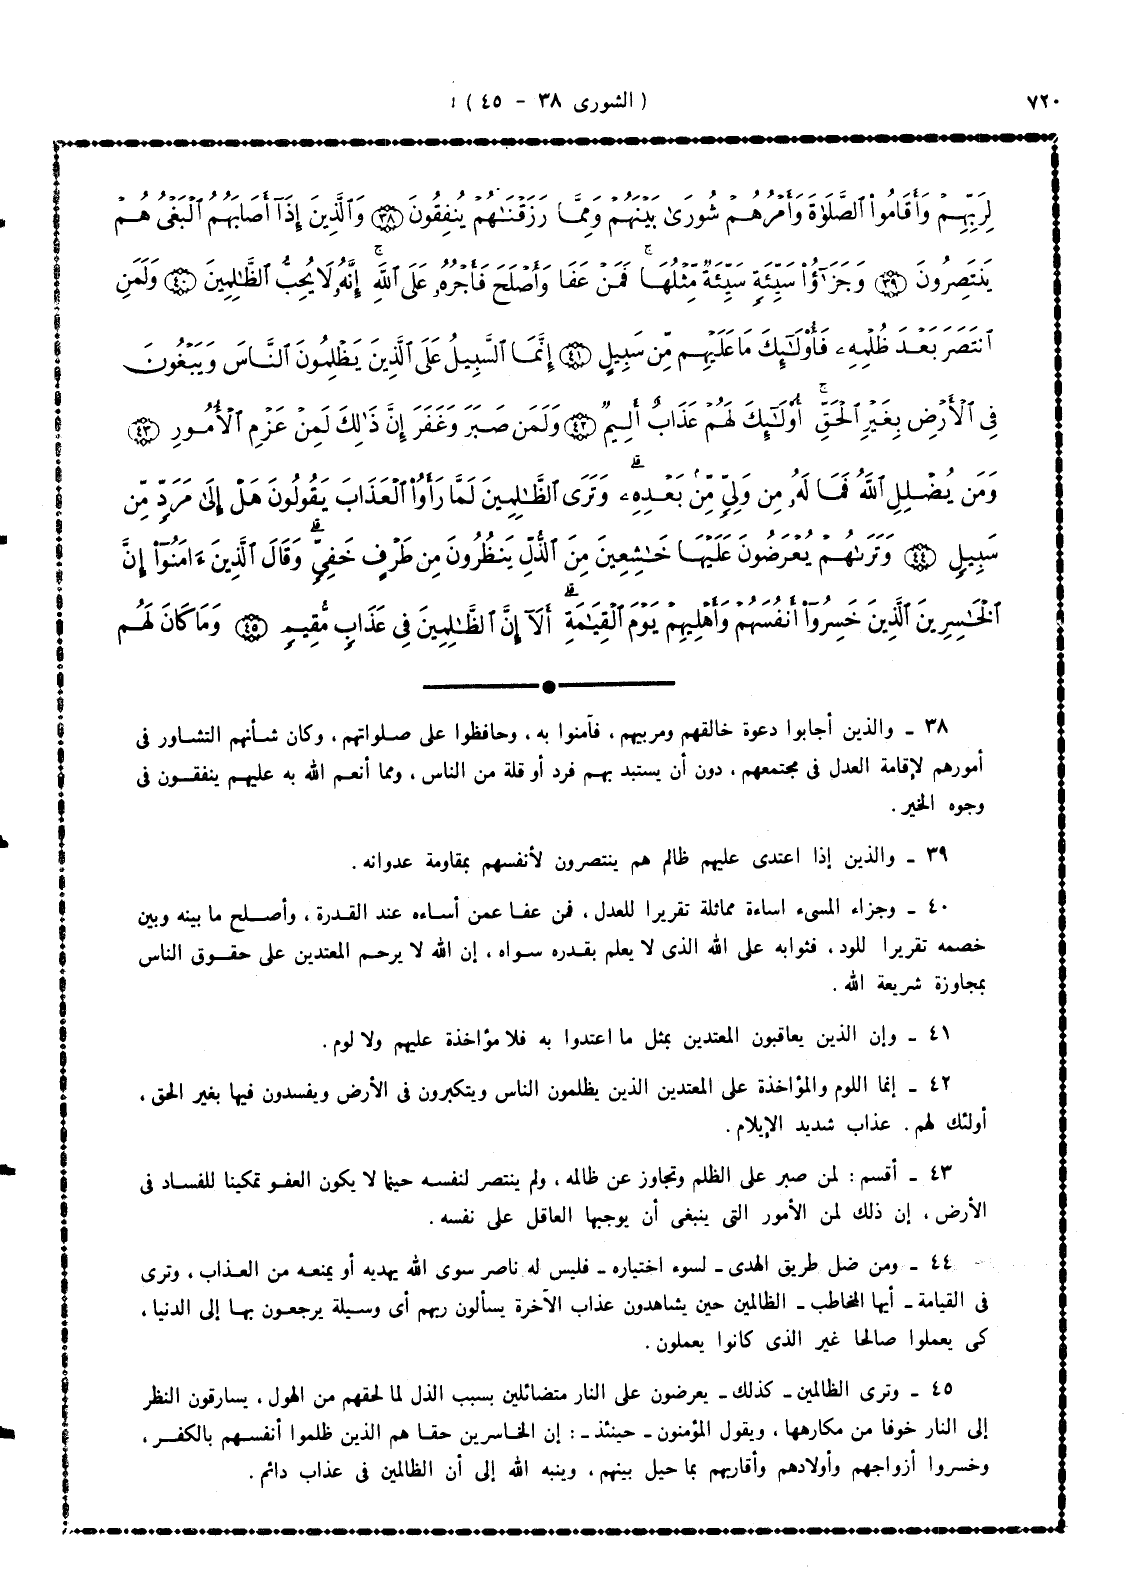 ٧٢٠
( الشورى ٣٨ - ٤٥ ) :
لِرَبِّهِمْ وَأَقَامُوا۟ ٱلصَّلَوٰةَ وَأَمْرُهُمْ شُورَىٰ بَيْنَهُمْ وَمِمَّا رَزَقْنَٰهُمْ يُنفِقُونَ ٣٨ وَٱلَّذِينَ إِذَآ أَصَابَهُمُ ٱلْبَغْىُ هُمْ
يَنتَصِرُونَ ٣٩ وَجَزَٰٓؤُا۟ سَيِّئَةٍ سَيِّئَةٌ مِّثْلُهَا ۖ فَمَنْ عَفَا وَأَصْلَحَ فَأَجْرُهُۥ عَلَى ٱللَّهِ ۚ إِنَّهُۥ لَا يُحِبُّ ٱلظَّٰلِمِينَ ٤٠ وَلَمَنِ
ٱنتَصَرَ بَعْدَ ظُلْمِهِۦ فَأُو۟لَٰٓئِكَ مَا عَلَيْهِم مِّن سَبِيلٍ ٤١ إِنَّمَا ٱلسَّبِيلُ عَلَى ٱلَّذِينَ يَظْلِمُونَ ٱلنَّاسَ وَيَبْغُونَ
فِى ٱلْأَرْضِ بِغَيْرِ ٱلْحَقِّ ۚ أُو۟لَٰٓئِكَ لَهُمْ عَذَابٌ أَلِيمٌ ٤٢ وَلَمَن صَبَرَ وَغَفَرَ إِنَّ ذَٰلِكَ لَمِنْ عَزْمِ ٱلْأُمُورِ ٤٣
وَمَن يُضْلِلِ ٱللَّهُ فَمَا لَهُۥ مِن وَلِىٍّ مِّنۢ بَعْدِهِۦ ۗ وَتَرَى ٱلظَّٰلِمِينَ لَمَّا رَأَوُا۟ ٱلْعَذَابَ يَقُولُونَ هَلْ إِلَىٰ مَرَدٍّ مِّن
سَبِيلٍ ٤٤ وَتَرَىٰهُمْ يُعْرَضُونَ عَلَيْهَا خَٰشِعِينَ مِنَ ٱلذُّلِّ يَنظُرُونَ مِن طَرْفٍ خَفِىٍّ ۗ وَقَالَ ٱلَّذِينَ ءَامَنُوٓا۟ إِنَّ
ٱلْخَٰسِرِينَ ٱلَّذِينَ خَسِرُوٓا۟ أَنفُسَهُمْ وَأَهْلِيهِمْ يَوْمَ ٱلْقِيَٰمَةِ ۗ أَلَآ إِنَّ ٱلظَّٰلِمِينَ فِى عَذَابٍ مُّقِيمٍ ٤٥ وَمَا كَانَ لَهُم
٣٨ ـ والذين أجابوا دعوة خالقهم ومربيهم ، فآمنوا به ، وحافظوا على صلواتهم ، وكان شأنهم التشاور فى
أمورهم لإقامة العدل فى مجتمعهم ، دون أن يستبد بهم فرد أو قلة من الناس ، ومما أنعم الله به عليهم ينفقون فى
وجوه الخير .
٣٩ ـ والذين إذا اعتدى عليهم ظالم هم ينتصرون لأنفسهم بمقاومة عدوانه .
٤٠ ـ وجزاء المسىء اساءة مماثلة تقريرا للعدل ، فمن عفا عمن أساءه عند القدرة ، وأصلح ما بينه وبين
خصمه تقريرا للود ، فثوابه على الله الذى لا يعلم بقدره سواه ، إن الله لا يرحم المعتدين على حقوق الناس
بمجاوزة شريعة الله .
٤١ ـ وإن الذين يعاقبون المعتدين بمثل ما اعتدوا به فلا مؤاخذة عليهم ولا لوم .
٤٢ ـ إنما اللوم والمؤاخذة على المعتدين الذين يظلمون الناس ويتكبرون فى الأرض ويفسدون فيها بغير الحق ،
أولئك لهم . عذاب شديد الإيلام .
٤٣ ـ أقسم : لمن صبر على الظلم وتجاوز عن ظالمه ، ولم ينتصر لنفسه حينما لا يكون العفو تمكينا للفساد فى
الأرض ، إن ذلك لمن الأمور التى ينبغى أن يوجبها العاقل على نفسه .
٤٤ ـ ومن ضل طريق الهدى ـ لسوء اختياره ـ فليس له ناصر سوى الله يهديه أو يمنعه من العذاب ، وترى
فى القيامة ـ أيها المخاطب ـ الظالمين حين يشاهدون عذاب الآخرة يسألون ربهم أى وسيلة يرجعون بها إلى الدنيا ،
كى يعملوا صالحا غير الذى كانوا يعملون .
٤٥ ـ وترى الظالمين ـ كذلك ـ يعرضون على النار متضائلين بسبب الذل لما لحقهم من الهول ، يسارقون النظر
إلى النار خوفا من مكارهها ، ويقول المؤمنون ـ حينئذ ـ : إن الخاسرين حقا هم الذين ظلموا أنفسهم بالكفر ،
وخسروا أزواجهم وأولادهم وأقاربهم بما حيل بينهم ، وينبه الله إلى أن الظالمين فى عذاب دائم .